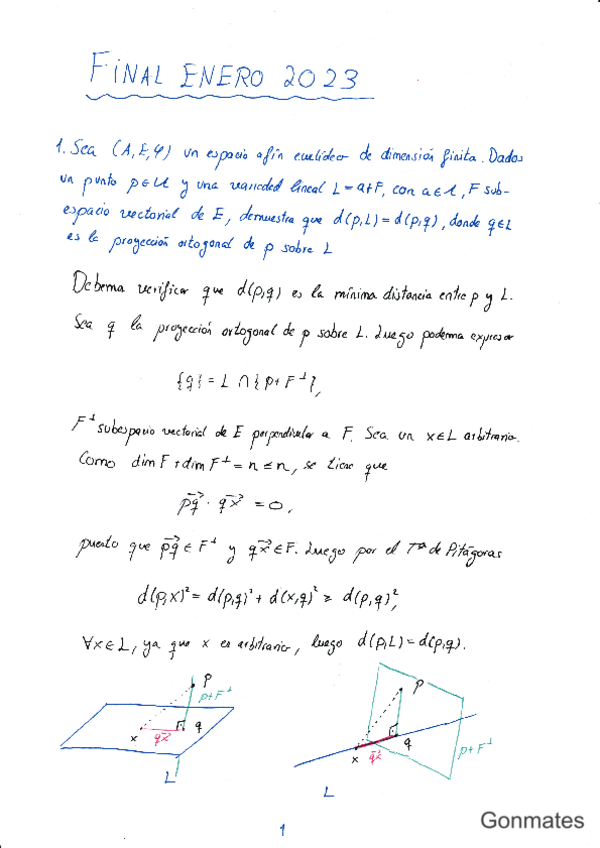 FINAL ENERO 2023
1. Sea (A,E,φ) un espacio afín euclídeo de dimensión finita. Dados
un punto p∈A y una variedad lineal L=a+F, con a∈A, F sub-
espacio vectorial de E, demuestra que d(p,L)=d(p,q), donde q∈L
es la proyección ortogonal de p sobre L
Debemos verificar que d(p,q) es la mínima distancia entre p y L.
Sea q la proyección ortogonal de p sobre L. Luego podemos expresar
{q} = L ∩ {p+F⊥},
F⊥ subespacio vectorial de E perpendicular a F. Sea un x∈L arbitrario.
Como dim F + dim F⊥ = n ≤ n, se tiene que
p⃗q · q⃗x = 0,
puesto que p⃗q ∈ F⊥ y q⃗x ∈ F. Luego por el Tª de Pitágoras
d(p,x)² = d(p,q)² + d(x,q)² ≥ d(p,q)²,
∀x∈L, ya que x es arbitrario, luego d(p,L)=d(p,q).
p
p+F⊥
x
q⃗x
q
L
p
q
x
q⃗x
p+F⊥
L
1
Gonmates